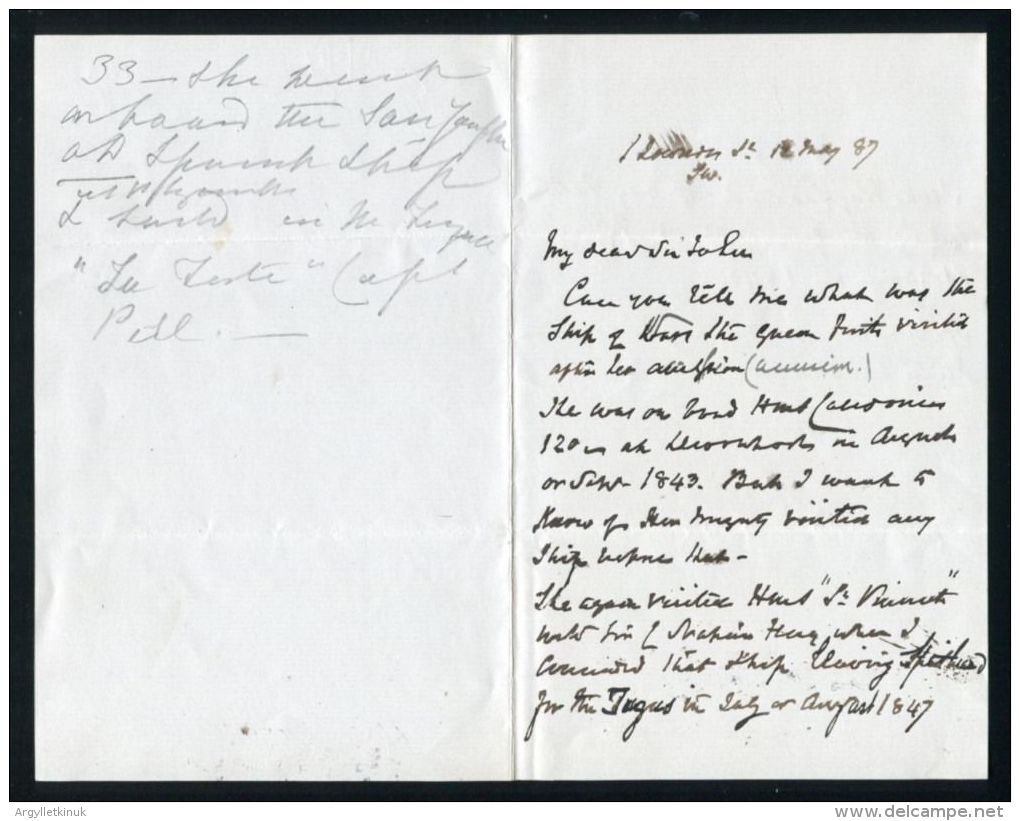 33 - She went
on board the San Josef
old Spanish Ship
at Plymouth
I was in
"La" Capt
Pell. -
1 Lowndes St. 12 May 87
SW.
My dear Sir John
Can you tell me what was the
Ship of War the Queen first visited
after her accession (accession.)
She was on board HMS Caledonia
120 at Devonport in August
or Sepr 1843. But I want to
know if Her Majesty visited any
Ship before that -
She again visited HMS "St Vincent"
with Sir C when I
commanded that Ship leaving Spithead
for the Tagus in July or August 1847
Argylletkinuk
www.delcampe.net